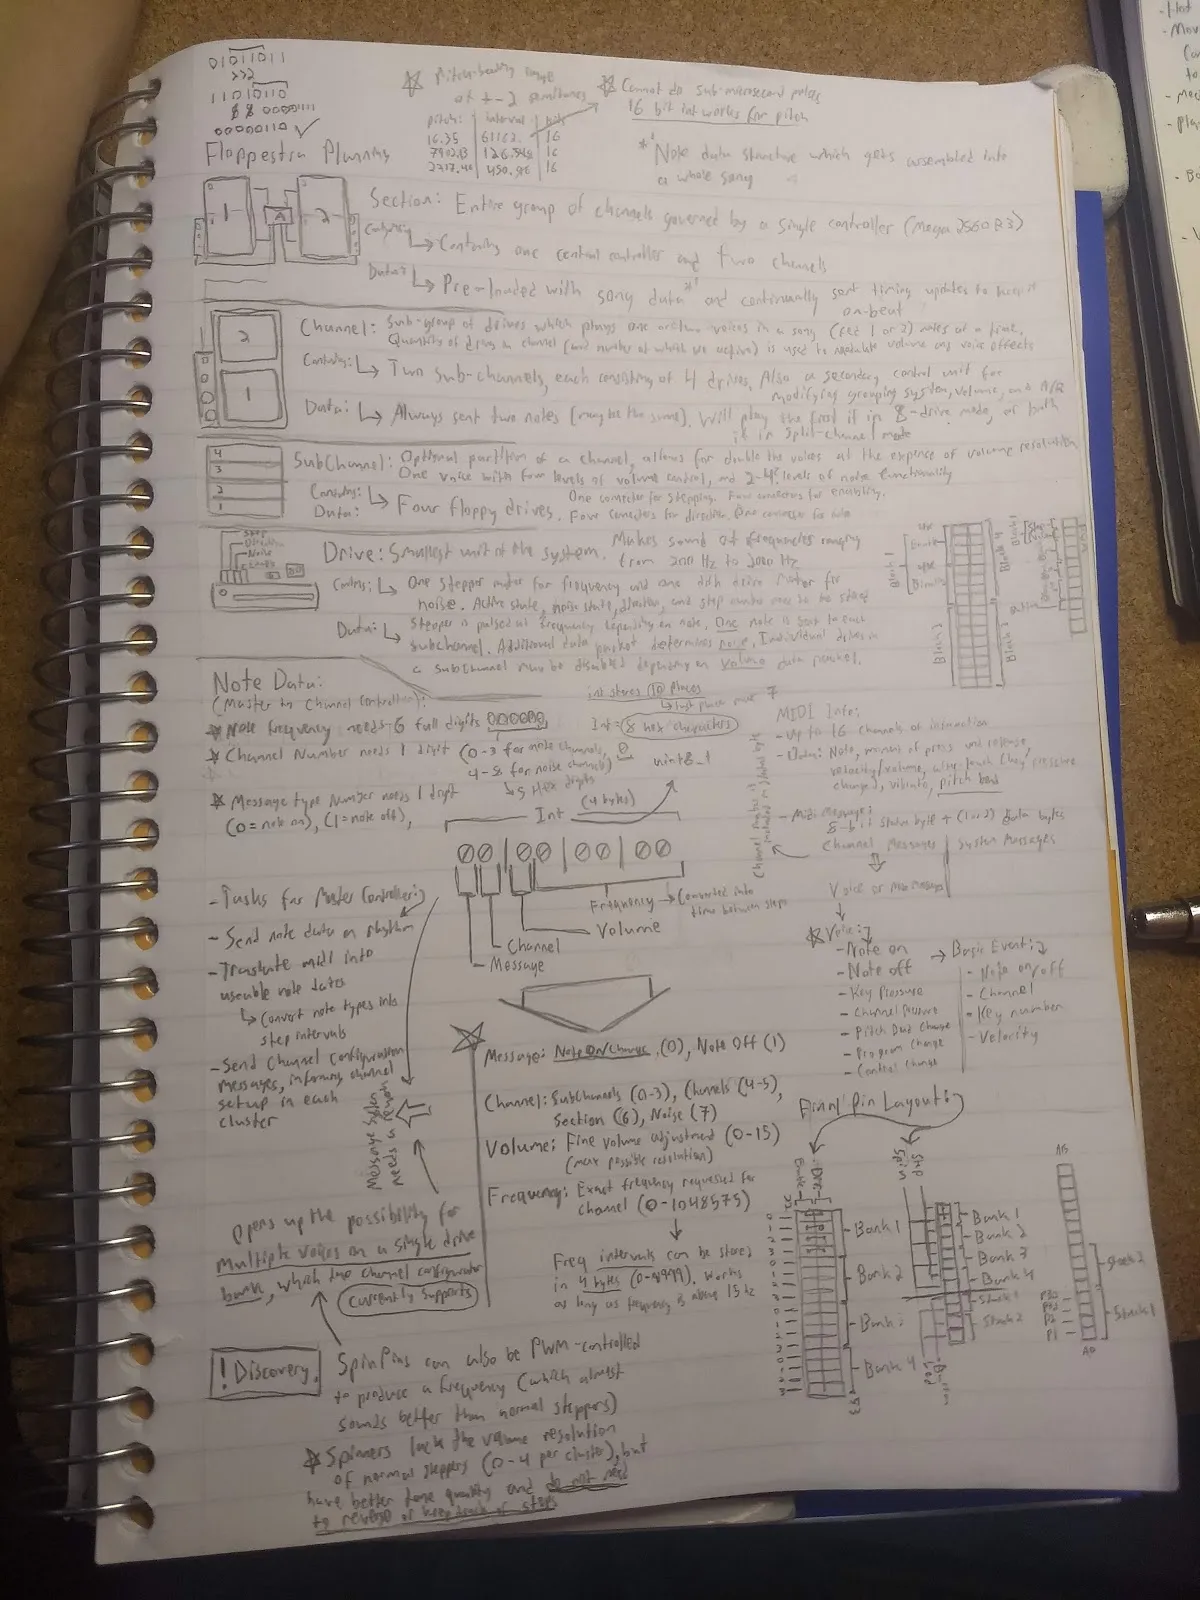 01011011
>>2
11010110
&& 00001111
00000110 ✓
Floppestra Planning
☆ Pitch-bending range
of +-2 semitones
pitch: | interval | bits
16.35 | 61162. | 16
7902.13 | 126.548 | 16
16
☆ Cannot do sub-microsecond pulses
16 bit int works for pitch
*¹ Note data structure which gets assembled into
a whole song
1 2
Section: Entire group of channels governed by a single controller (Mega 2560 R3)
Contains: ↳ Contains one central controller and two channels
Data: ↳ Pre-loaded with song data*¹ and continually sent timing updates to keep it
on-beat
2
1
Channel: Sub-group of drives which plays one or two voices in a song (1 or 2) notes at a time.
Quantity of drives in channel (and number of which are active) is used to modulate volume and voice effects
Contains: ↳ Two sub-channels, each consisting of 4 drives. Also a secondary control unit for
modifying grouping system, volume, and
Data: ↳ Always sent two notes (may be the same). Will play the first if in 8-drive mode, or both
if in split-channel mode
4
3
2
1
SubChannel: Optional partition of a channel, allows for double the voices at the expense of volume resolution
One voice with four levels of volume control, and 2-4 levels of noise functionality
Contains: ↳ Four floppy drives.
Data:
One connector for stepping. Four connectors for enabling.
Four connectors for direction. One connector for
Step
Direction
Noise
Enable
Drive: Smallest unit of the system. Makes sound at frequencies ranging
from 200 Hz to 2000 Hz
Contains: ↳ One stepper motor for frequency and one disk drive motor for
noise. Active state, noise state, direction, and step number need to be stored
Data: ↳ Stepper is pulsed at frequency depending on note. One note is sent to each
subchannel. Additional data packet determines noise. Individual drives in
a subchannel may be disabled depending on volume data packet.
Block 1
Block 2
Block 3
Block 4
Note Data:
(Master to Channel Controller):
☆ Note frequency needs 6 full digits 000000
☆ Channel Number needs 1 digit (0-3 for note channels, 0
4-8 for noise channels)
↳ 5 Hex digits
☆ Message type Number needs 1 digit
(0 = note on), (1 = note off),
int stores 10 places
↳ last place max 7
Int = 8 hex characters
uint8_t
Int (4 bytes)
00|00|00|00
Frequency → Converted into
time between steps
Volume
Channel
Message
MIDI Info:
- Up to 16 Channels of instruction
- Data: Note, moment of press and release,
velocity/volume, after-touch (key pressure
change), vibrato, pitch bend
- Midi Message:
8-bit status byte + (1 or 2) data bytes
Channel Messages | System Messages
Channel number is
included in status byte
Voice or Mode Message
☆ Voice:
- Note on
- Note off
- Key Pressure
- Channel Pressure
- Pitch Bend Change
- Program Change
- Control Change
→ Basic Event:
- Note on/off
- Channel
- Key number
- Velocity
- Tasks for Master Controller:
- Send note data on rhythm
- Translate midi into
useable note data
↳ Convert note types into
step intervals
- Send Channel Configuration
messages, informing channel
setup in each
cluster
Message System
needs a rework
☆ Message: Note On/Change (0), Note Off (1)
Channel: SubChannels (0-3), Channels (4-5),
Section (6), Noise (7)
Volume: Fine volume adjustment (0-15)
(max possible resolution)
Frequency: Exact frequency requested for
channel (0-1048575)
Freq intervals can be stored
in 4 bytes. Works
as long as frequency is above 15 hz
Opens up the possibility for
multiple voices on a single drive
bank, which the channel configurator
currently supports
! Discovery:
SpinPins can also be PWM-controlled
to produce a frequency (which almost
sounds better than normal steppers)
☆ Spinners lack the volume resolution
of normal steppers (0-4 per cluster), but
have better tone quality and do not need
to reverse or keep track of steps
Final Pin Layout:
Enable
Dir
Step
Spin
22
53
Bank 1
Bank 2
Bank 3
Bank 4
Bank 1
Bank 2
Bank 3
Bank 4
Stack 1
Stack 2
A15
Stack 2
Stack 1
P2
P1
A0